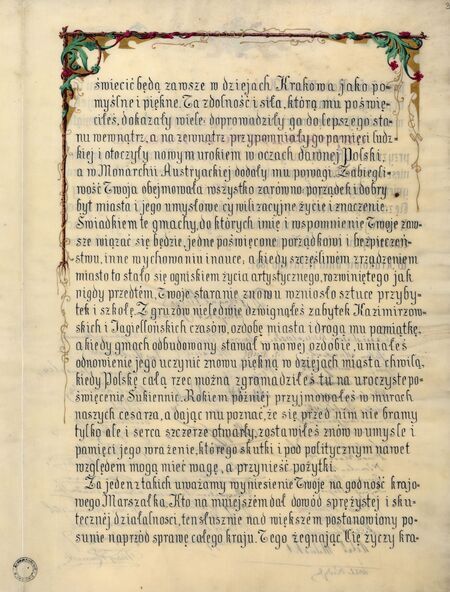 świecić będą zawsze w dziejach Krakowa jako po=
myślne i piękne. Ta zdolność i siła, którą mu poświę=
ciłeś, dokazały wiele: doprowadziły go do lepszego sta=
nu wewnątrz, a na zewnątrz przypomniały go pamięci ludz=
kiej i otoczyły nowym urokiem w oczach dawnej Polski,
a w Monarchii Austryackiej dodały mu powagi. Zabiegli=
wość Twoja obejmowała wszystko zarówno: porządek i dobry
byt miasta i jego umysłowe cywilizacyjne życie i znaczenie.
Świadkiem te gmachy, do których imię i wspomnienie Twoje zaw=
sze wiązać się będzie, jedne poświęcone porządkowi i bezpieczeń=
stwu, inne wychowaniu i nauce, a kiedy szczęśliwem zrządzeniem
miasto to stało się ogniskiem życia artystycznego, rozwiniętego jak
nigdy przedtem, Twoje staranie znowu wzniosło sztuce przyby=
tek i szkołę. Z gruzów nieledwie dźwignąłeś zabytek Kazimirzow=
skich i Jagiellońskich czasów, ozdobę miasta i drogą mu pamiątkę,
a kiedy gmach odbudowany stawał w nowej ozdobie, umiałeś
odnowienie jego uczynić znowu piękną w dziejach miasta chwilą,
kiedy Polskę całą rzec można zgromadziłeś tu na uroczyste po=
święcenie Sukiennic. Rokiem później przyjmowałeś w murach
naszych cesarza, a dając mu poznać, że się przed nim nie bramy
tylko ale i serca szczerze otwarły, zostawiłeś znów w umyśle i
pamięci jego wrażenie, którego skutki i pod politycznym nawet
względem mogą mieć wagę, a przynieść pożytki.
Za jeden z takich uważamy wyniesienie Twoje na godność krajo=
wego Marszałka. Kto na mniejszém dał dowód sprężystej i sku=
tecznéj działalności, ten słusznie nad większém postanowiony po=
sunie naprzód sprawę całego kraju. Tego żegnając Cię życzy kra=